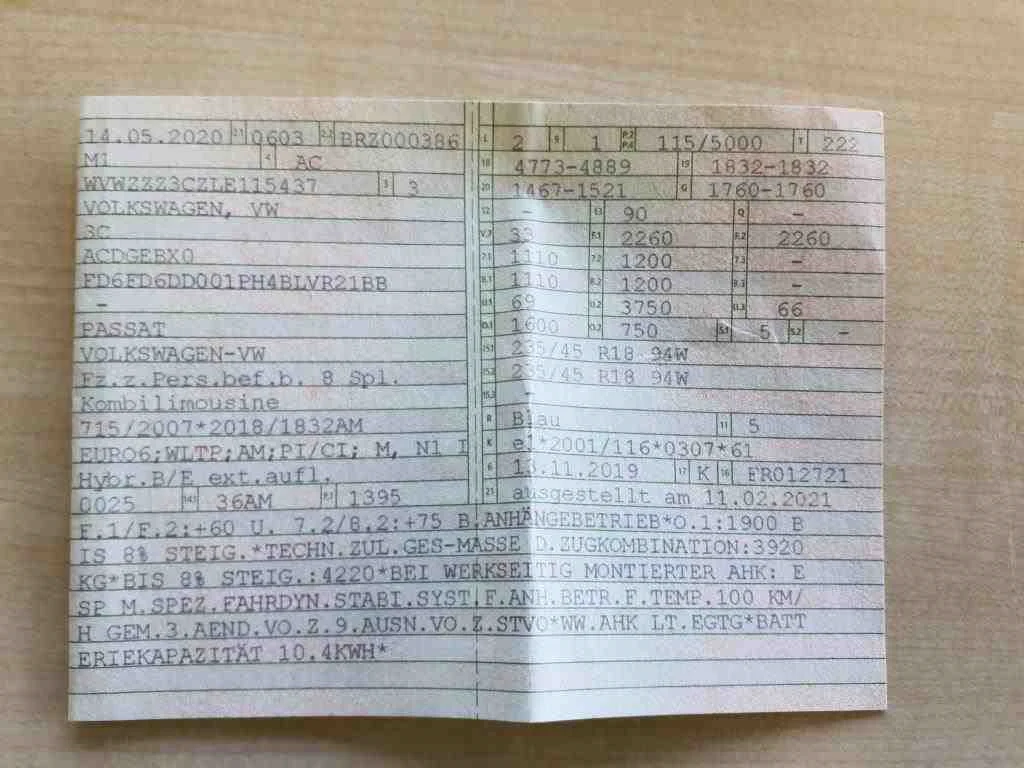 14.05.2020 2.1 0603 2.2 BRZ000386
M1 4 AC
WVWZZZ3CZLE115437 3 3
VOLKSWAGEN, VW
3C
ACDGEBX0
FD6FD6DD001PH4BLVR21BB
-
PASSAT
VOLKSWAGEN-VW
Fz.z.Pers.bef.b. 8 Spl.
Kombilimousine
715/2007*2018/1832AM
EURO6;WLTP;AM;PI/CI; M, N1 I
Hybr.B/E ext.aufl.
0025 14.1 36AM P.1 1395
L 2 9 1 P.2 P.4 115/5000 T 222
18 4773-4889 19 1832-1832
20 1467-1521 G 1760-1760
12 - 13 90 Q -
V.7 33 F.1 2260 F.2 2260
7.1 1110 7.2 1200 7.3 -
8.1 1110 8.2 1200 8.3 -
U.1 69 U.2 3750 U.3 66
O.1 1600 O.2 750 S.1 5 S.2 -
15.1 235/45 R18 94W
15.2 235/45 R18 94W
15.3 -
R Blau 11 5
K e1*2001/116*0307*61
6 13.11.2019 17 K 16 FR012721
21 ausgestellt am 11.02.2021
F.1/F.2:+60 U. 7.2/8.2:+75 B.ANHÄNGEBETRIEB*O.1:1900 B
IS 8% STEIG.*TECHN.ZUL.GES-MASSE D.ZUGKOMBINATION:3920
KG*BIS 8% STEIG.:4220*BEI WERKSEITIG MONTIERTER AHK: E
SP M.SPEZ.FAHRDYN.STABI.SYST.F.ANH.BETR.F.TEMP.100 KM/
H GEM.3.AEND.VO.Z.9.AUSN.VO.Z.STVO*WW.AHK LT.EGTG*BATT
ERIEKAPAZITÄT 10.4KWH*